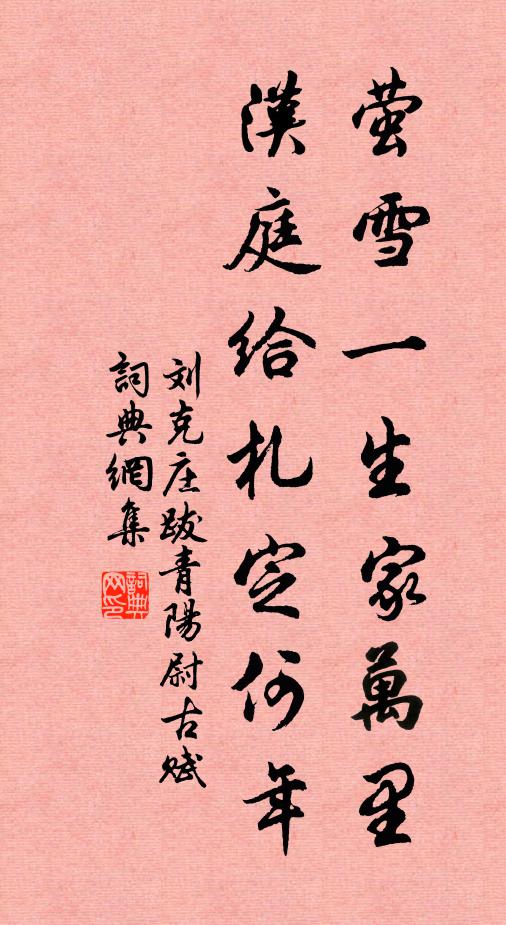 萤雪一生家萬里
漢庭给札定何年
刘克庄跋青陽尉古赋
詞典網集
詞典网印